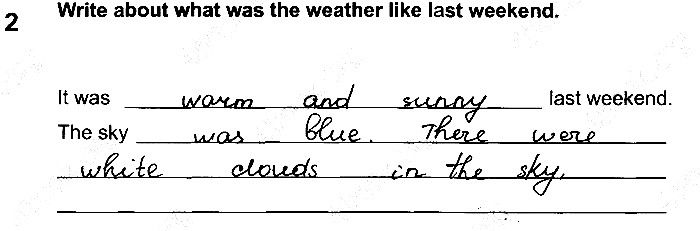 2
Write about what was the weather like last weekend.
It was warm and sunny last weekend.
The sky was blue. There were
white clouds in the sky.